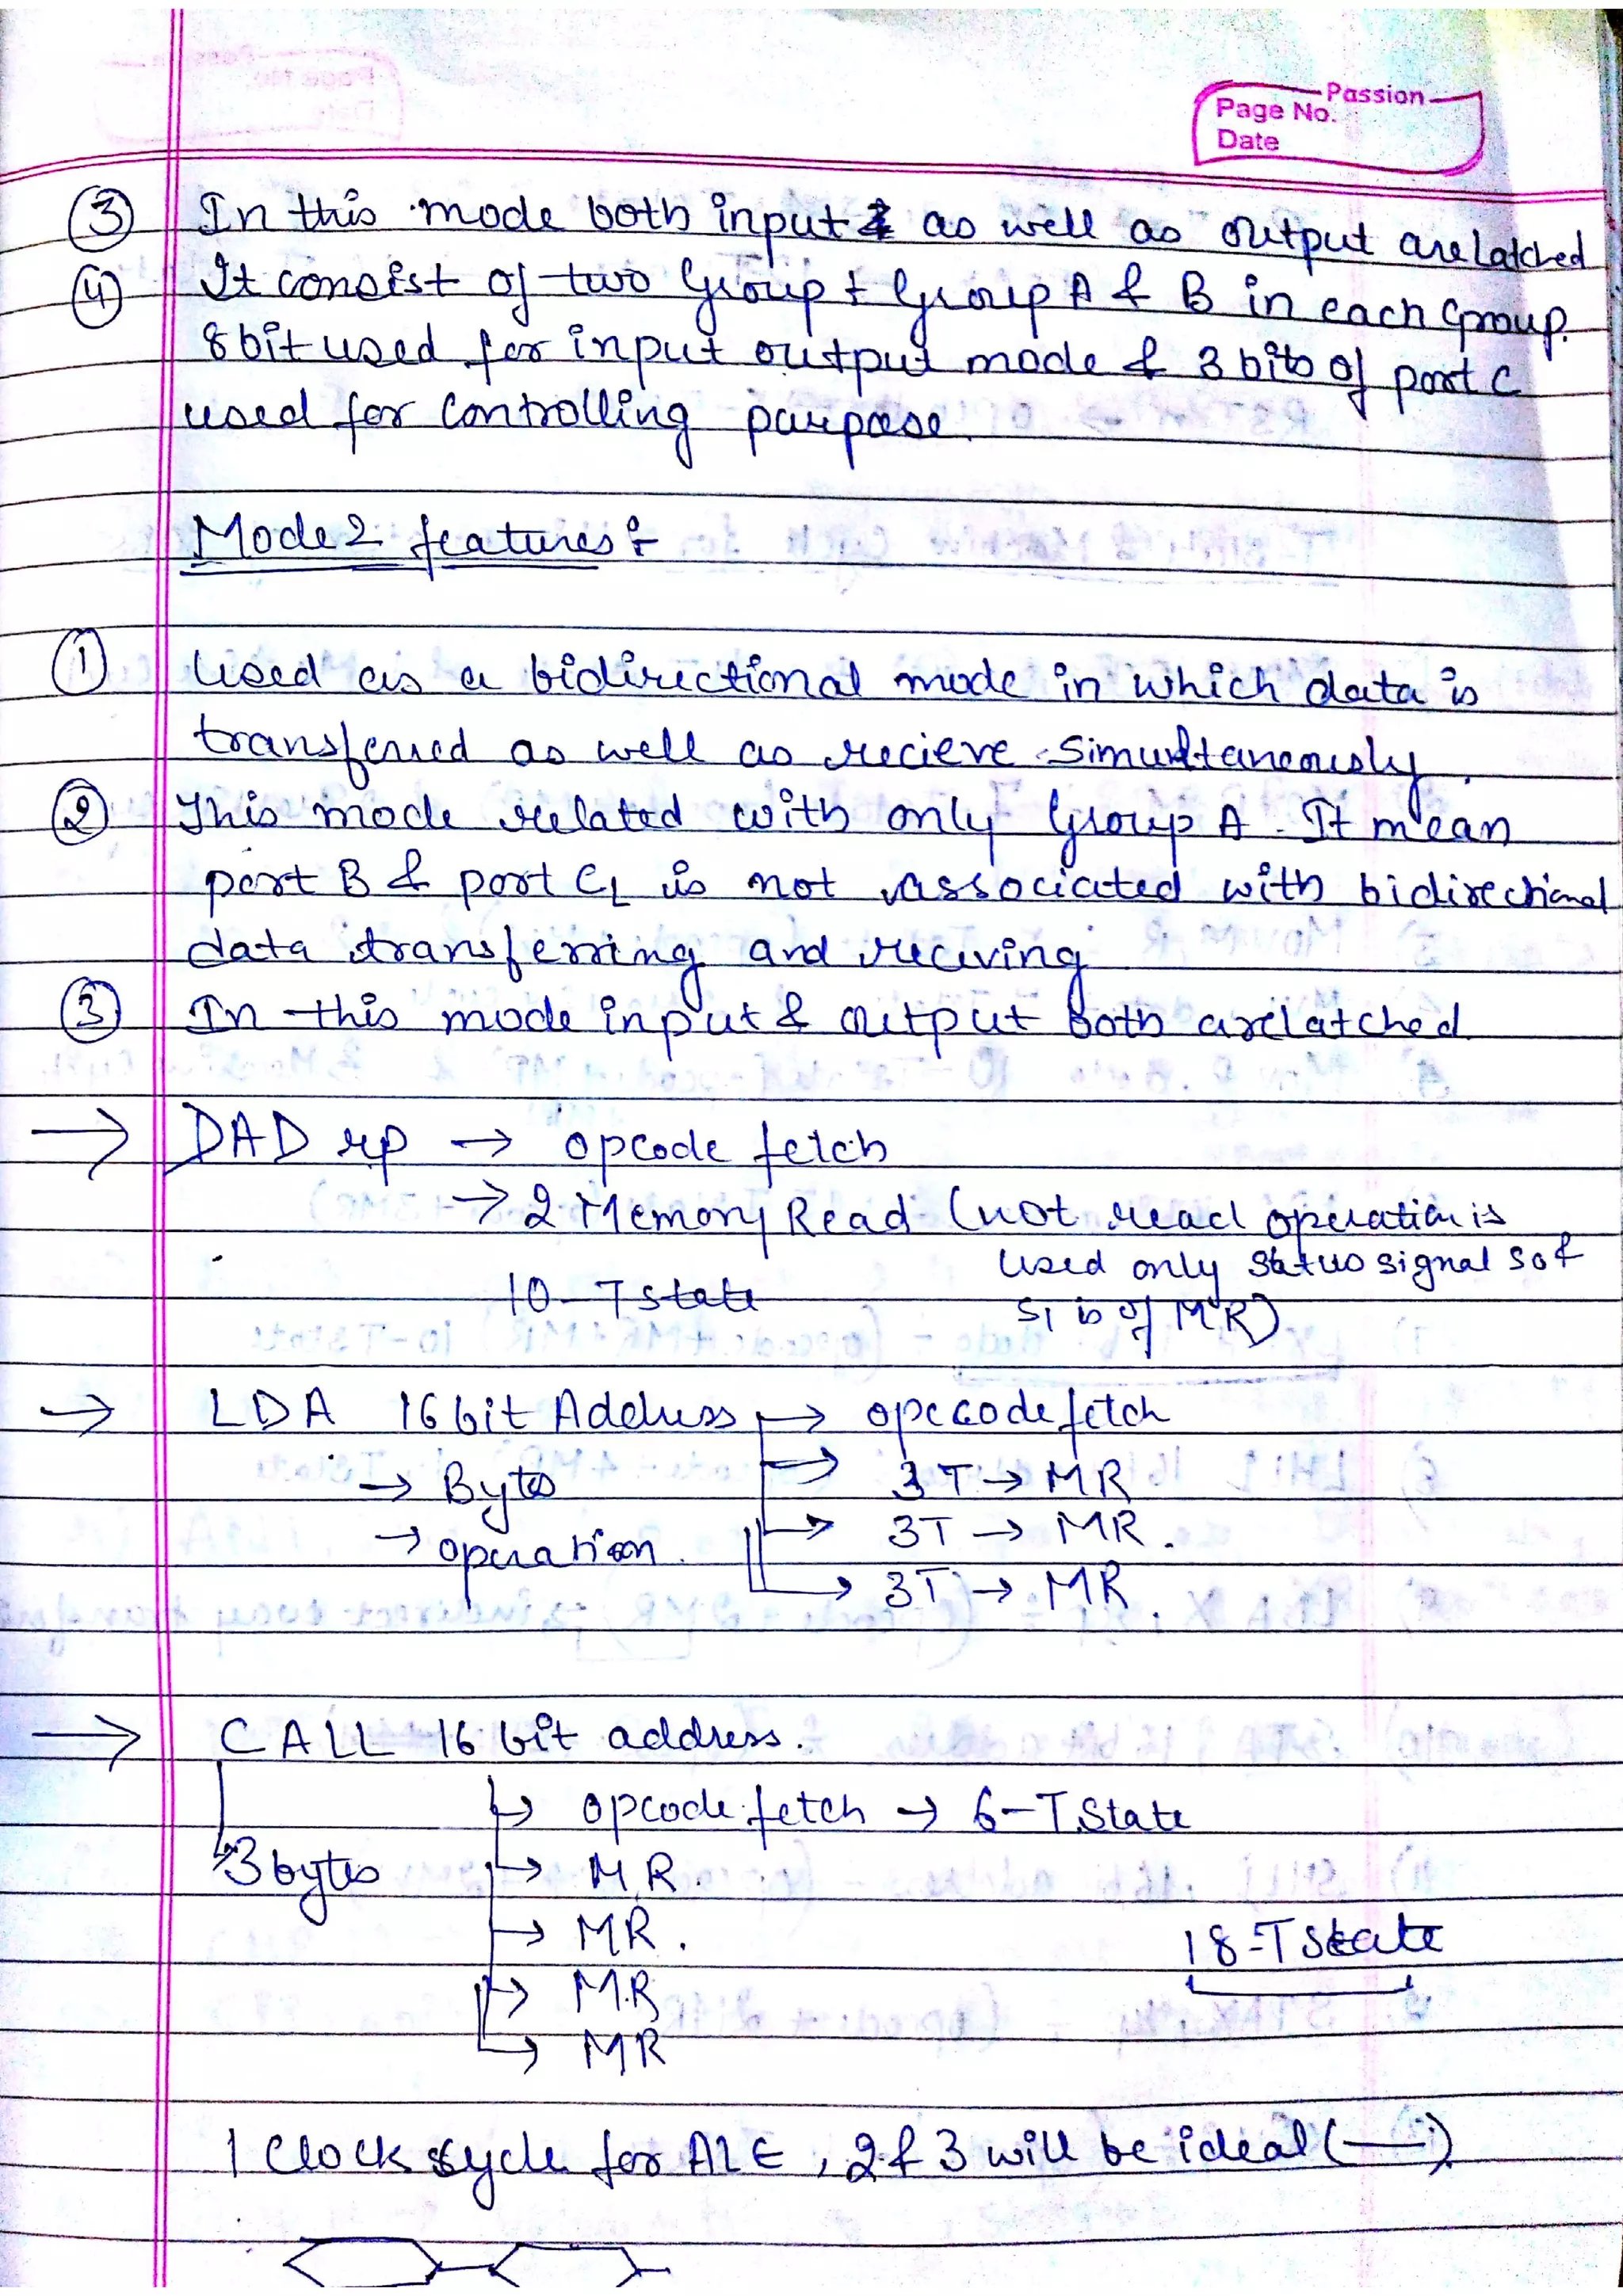 Passion
Page No.
Date
③ In this mode both input & as well as output are latched
④ It consist of two Group : Group A & B in each Group.
8 bit used for input output mode & 3 bits of port C
used for controlling purpose.
Mode 2 features :-
① Used as a bidirectional mode in which data is
transferred as well as recieve simultaneously.
② This mode related with only Group A. It mean
port B & port CL is not associated with bidirectional
data transferring and reciving
③ In this mode input & output both are latched.
→ DAD rp → opcode fetch
→ 2 Memory Read (not read operation is
used only status signal S0 &
10-T state S1 is of MR)
→ LDA 16 bit Address → opccode fetch
→ Bytes → 3T → MR
→ operation. → 3T → MR.
→ 3T → MR.
→ CALL 16 bit address.
→ opcode fetch → 6-T State
3 bytes → MR.
→ MR. 18-T state
→ MR
→ MR
1 Clock sycle for ALE, 2 & 3 will be ideal (—)